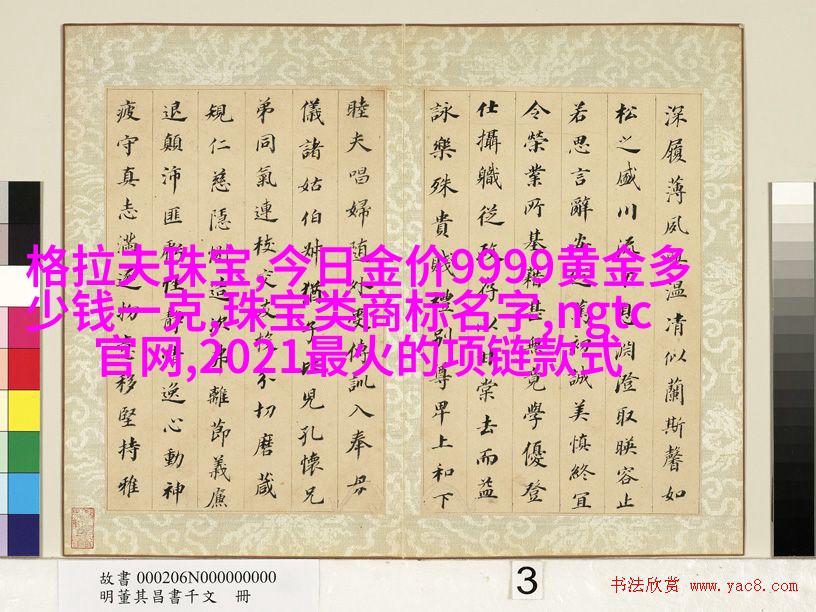 格拉夫珠宝,今日金价9999黄金多
少钱一克,珠宝类商标名字,ngtc
官网,2021最火的项链款式
深履薄夙興溫凊似蘭斯馨如
松之盛川流不息淵澄取暎容止
若思言辭安定篤初誠美慎終宜
令榮業所基籍甚無竟學優登
仕攝職從政存以甘棠去而益
詠樂殊貴賤禮別尊卑上和下
睦夫唱婦隨外受傅訓入奉母
儀諸姑伯叔猶子比兒孔懷兄
弟同氣連枝交友投分切磨箴
規仁慈隱惻造次弗離節義廉
退顛沛匪虧性靜情逸心動神
疲守真志滿逐物意移堅持雅
故書 000206N000000000
明董其昌書千文 冊
3
书法欣赏 www.yac8.com